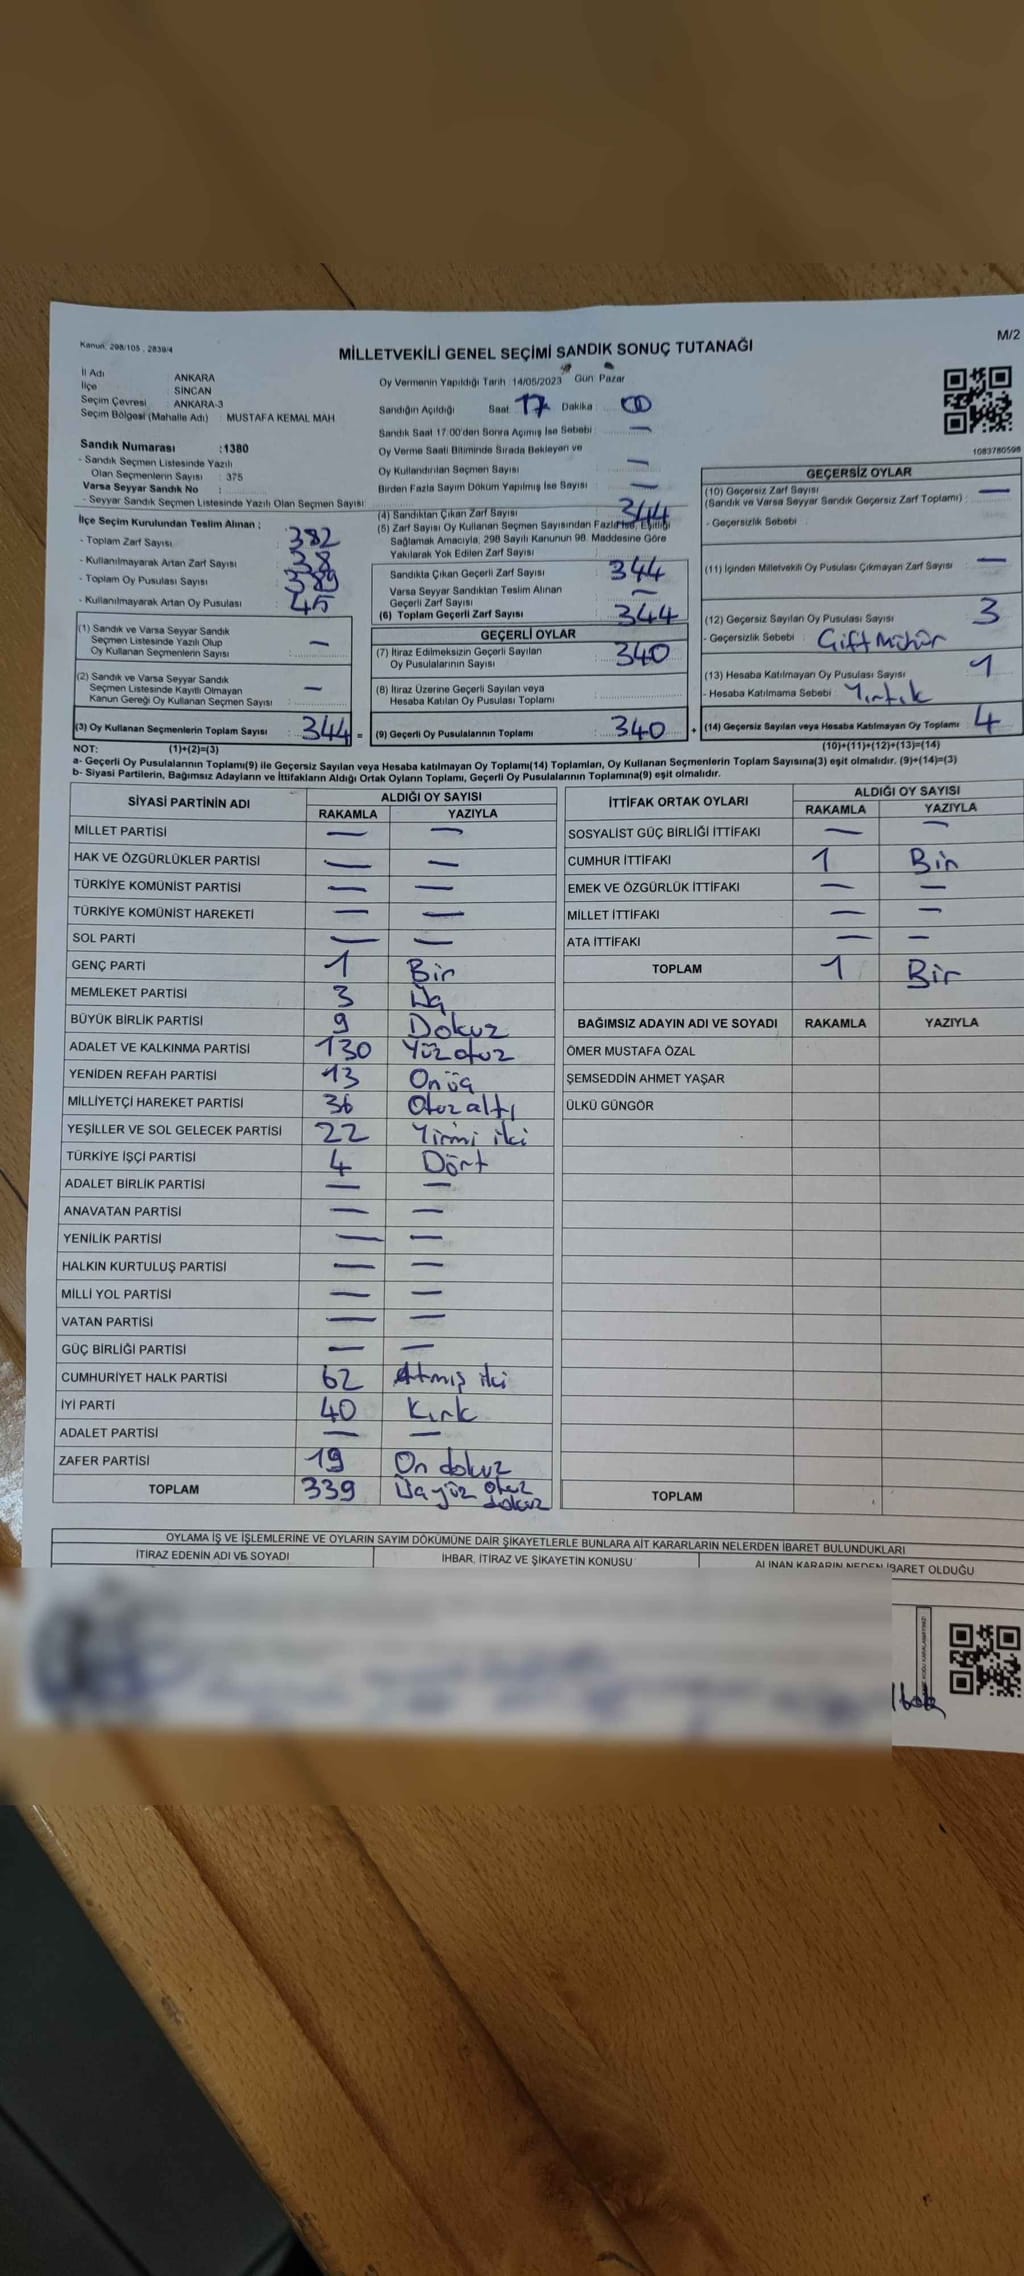 Kanun: 298/105 , 2839/4
M/2
MİLLETVEKİLİ GENEL SEÇİMİ SANDIK SONUÇ TUTANAĞI
İl Adı ANKARA
İlçe SİNCAN
Seçim Çevresi ANKARA-3
Seçim Bölgesi (Mahalle Adı) : MUSTAFA KEMAL MAH
Sandık Numarası :1380
- Sandık Seçmen Listesinde Yazılı
Olan Seçmenlerin Sayısı : 375
Varsa Seyyar Sandık No :
- Seyyar Sandık Seçmen Listesinde Yazılı Olan Seçmen Sayısı:
İlçe Seçim Kurulundan Teslim Alınan ;
- Toplam Zarf Sayısı : 382
- Kullanılmayarak Artan Zarf Sayısı : 38
- Toplam Oy Pusulası Sayısı : 389
- Kullanılmayarak Artan Oy Pusulası : 45
(1) Sandık ve Varsa Seyyar Sandık
Seçmen Listesinde Yazılı Olup
Oy Kullanan Seçmenlerin Sayısı : —
(2) Sandık ve Varsa Seyyar Sandık
Seçmen Listesinde Kayıtlı Olmayan
Kanun Gereği Oy Kullanan Seçmen Sayısı : —
(3) Oy Kullanan Seçmenlerin Toplam Sayısı : 344 =
Oy Vermenin Yapıldığı Tarih :14/05/2023 Gün : Pazar
Sandığın Açıldığı Saat : 17 Dakika : 00
Sandık Saat 17:00'den Sonra Açılmış İse Sebebi : —
Oy Verme Saati Bitiminde Sırada Bekleyen ve
Oy Kullandırılan Seçmen Sayısı : —
Birden Fazla Sayım Döküm Yapılmış İse Sayısı : —
(4) Sandıktan Çıkan Zarf Sayısı : 344
(5) Zarf Sayısı Oy Kullanan Seçmen Sayısından Fazla İse, Eşitliği
Sağlamak Amacıyla, 298 Sayılı Kanunun 98. Maddesine Göre
Yakılarak Yok Edilen Zarf Sayısı :
Sandıkta Çıkan Geçerli Zarf Sayısı : 344
Varsa Seyyar Sandıktan Teslim Alınan
Geçerli Zarf Sayısı : —
(6) Toplam Geçerli Zarf Sayısı : 344
GEÇERLİ OYLAR
(7) İtiraz Edilmeksizin Geçerli Sayılan
Oy Pusulalarının Sayısı : 340
(8) İtiraz Üzerine Geçerli Sayılan veya
Hesaba Katılan Oy Pusulası Toplamı :
(9) Geçerli Oy Pusulalarının Toplamı : 340 +
1083780598
GEÇERSİZ OYLAR
(10) Geçersiz Zarf Sayısı
(Sandık ve Varsa Seyyar Sandık Geçersiz Zarf Toplamı) : —
- Geçersizlik Sebebi :
(11) İçinden Milletvekili Oy Pusulası Çıkmayan Zarf Sayısı : —
(12) Geçersiz Sayılan Oy Pusulası Sayısı : 3
- Geçersizlik Sebebi : Çift Mühür
(13) Hesaba Katılmayan Oy Pusulası Sayısı : 1
- Hesaba Katılmama Sebebi : Yırtık
(14) Geçersiz Sayılan veya Hesaba Katılmayan Oy Toplamı : 4
NOT: (1)+(2)=(3)
(10)+(11)+(12)+(13)=(14)
a- Geçerli Oy Pusulalarının Toplamı(9) ile Geçersiz Sayılan veya Hesaba katılmayan Oy Toplamı(14) Toplamları, Oy Kullanan Seçmenlerin Toplam Sayısına(3) eşit olmalıdır. (9)+(14)=(3)
b- Siyasi Partilerin, Bağımsız Adayların ve İttifakların Aldığı Ortak Oyların Toplamı, Geçerli Oy Pusulalarının Toplamına(9) eşit olmalıdır.
SİYASİ PARTİNİN ADI ALDIĞI OY SAYISI
RAKAMLA YAZIYLA
MİLLET PARTİSİ — —
HAK VE ÖZGÜRLÜKLER PARTİSİ — —
TÜRKİYE KOMÜNİST PARTİSİ — —
TÜRKİYE KOMÜNİST HAREKETİ — —
SOL PARTİ — —
GENÇ PARTİ 1 Bir
MEMLEKET PARTİSİ 3 Üç
BÜYÜK BİRLİK PARTİSİ 9 Dokuz
ADALET VE KALKINMA PARTİSİ 130 Yüz otuz
YENİDEN REFAH PARTİSİ 13 On üç
MİLLİYETÇİ HAREKET PARTİSİ 36 Otuz altı
YEŞİLLER VE SOL GELECEK PARTİSİ 22 Yirmi iki
TÜRKİYE İŞÇİ PARTİSİ 4 Dört
ADALET BİRLİK PARTİSİ — —
ANAVATAN PARTİSİ — —
YENİLİK PARTİSİ — —
HALKIN KURTULUŞ PARTİSİ — —
MİLLİ YOL PARTİSİ — —
VATAN PARTİSİ — —
GÜÇ BİRLİĞİ PARTİSİ — —
CUMHURİYET HALK PARTİSİ 62 Atmış iki
İYİ PARTİ 40 Kırk
ADALET PARTİSİ — —
ZAFER PARTİSİ 19 On dokuz
TOPLAM 339 Üç yüz otuz dokuz
İTTİFAK ORTAK OYLARI ALDIĞI OY SAYISI
RAKAMLA YAZIYLA
SOSYALİST GÜÇ BİRLİĞİ İTTİFAKI — —
CUMHUR İTTİFAKI 1 Bir
EMEK VE ÖZGÜRLÜK İTTİFAKI — —
MİLLET İTTİFAKI — —
ATA İTTİFAKI — —
TOPLAM 1 Bir
BAĞIMSIZ ADAYIN ADI VE SOYADI RAKAMLA YAZIYLA
ÖMER MUSTAFA ÖZAL
ŞEMSEDDİN AHMET YAŞAR
ÜLKÜ GÜNGÖR
TOPLAM
OYLAMA İŞ VE İŞLEMLERİNE VE OYLARIN SAYIM DÖKÜMÜNE DAİR ŞİKAYETLERLE BUNLARA AİT KARARLARIN NELERDEN İBARET BULUNDUKLARI
İTİRAZ EDENİN ADI VE SOYADI İHBAR, İTİRAZ VE ŞİKAYETİN KONUSU ALINAN KARARIN NEDEN İBARET OLDUĞU